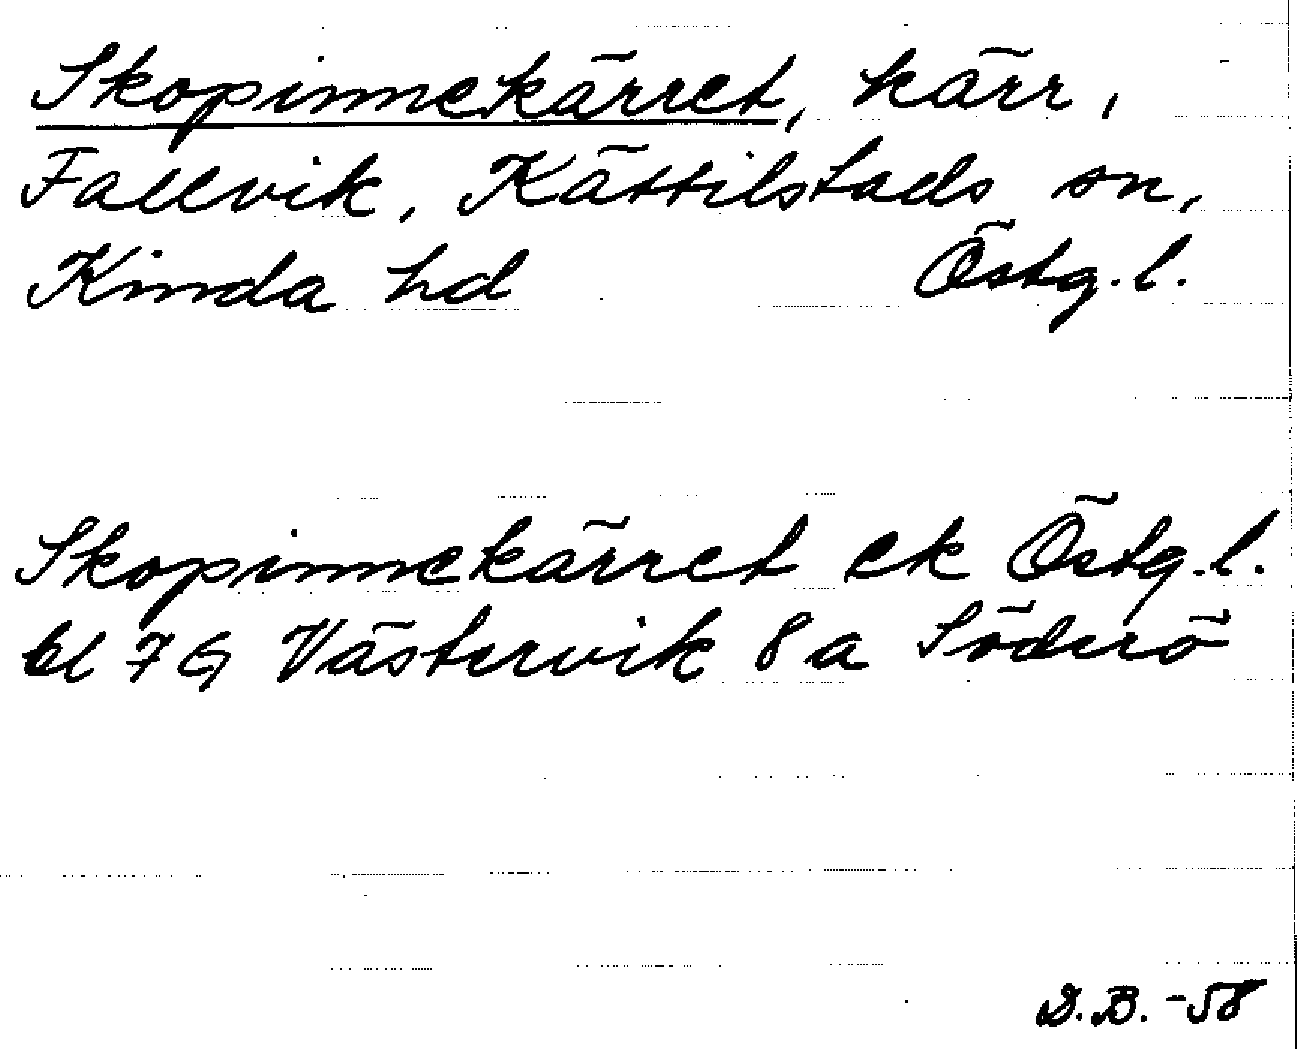 Skopinnekärret, kärr,
Fallvik, Kättilstads sn,
Kinda hd Östg. l.
Skopinnekärret ek Östg. l.
bl 7G Västervik 8a Söderö
D.B. -58